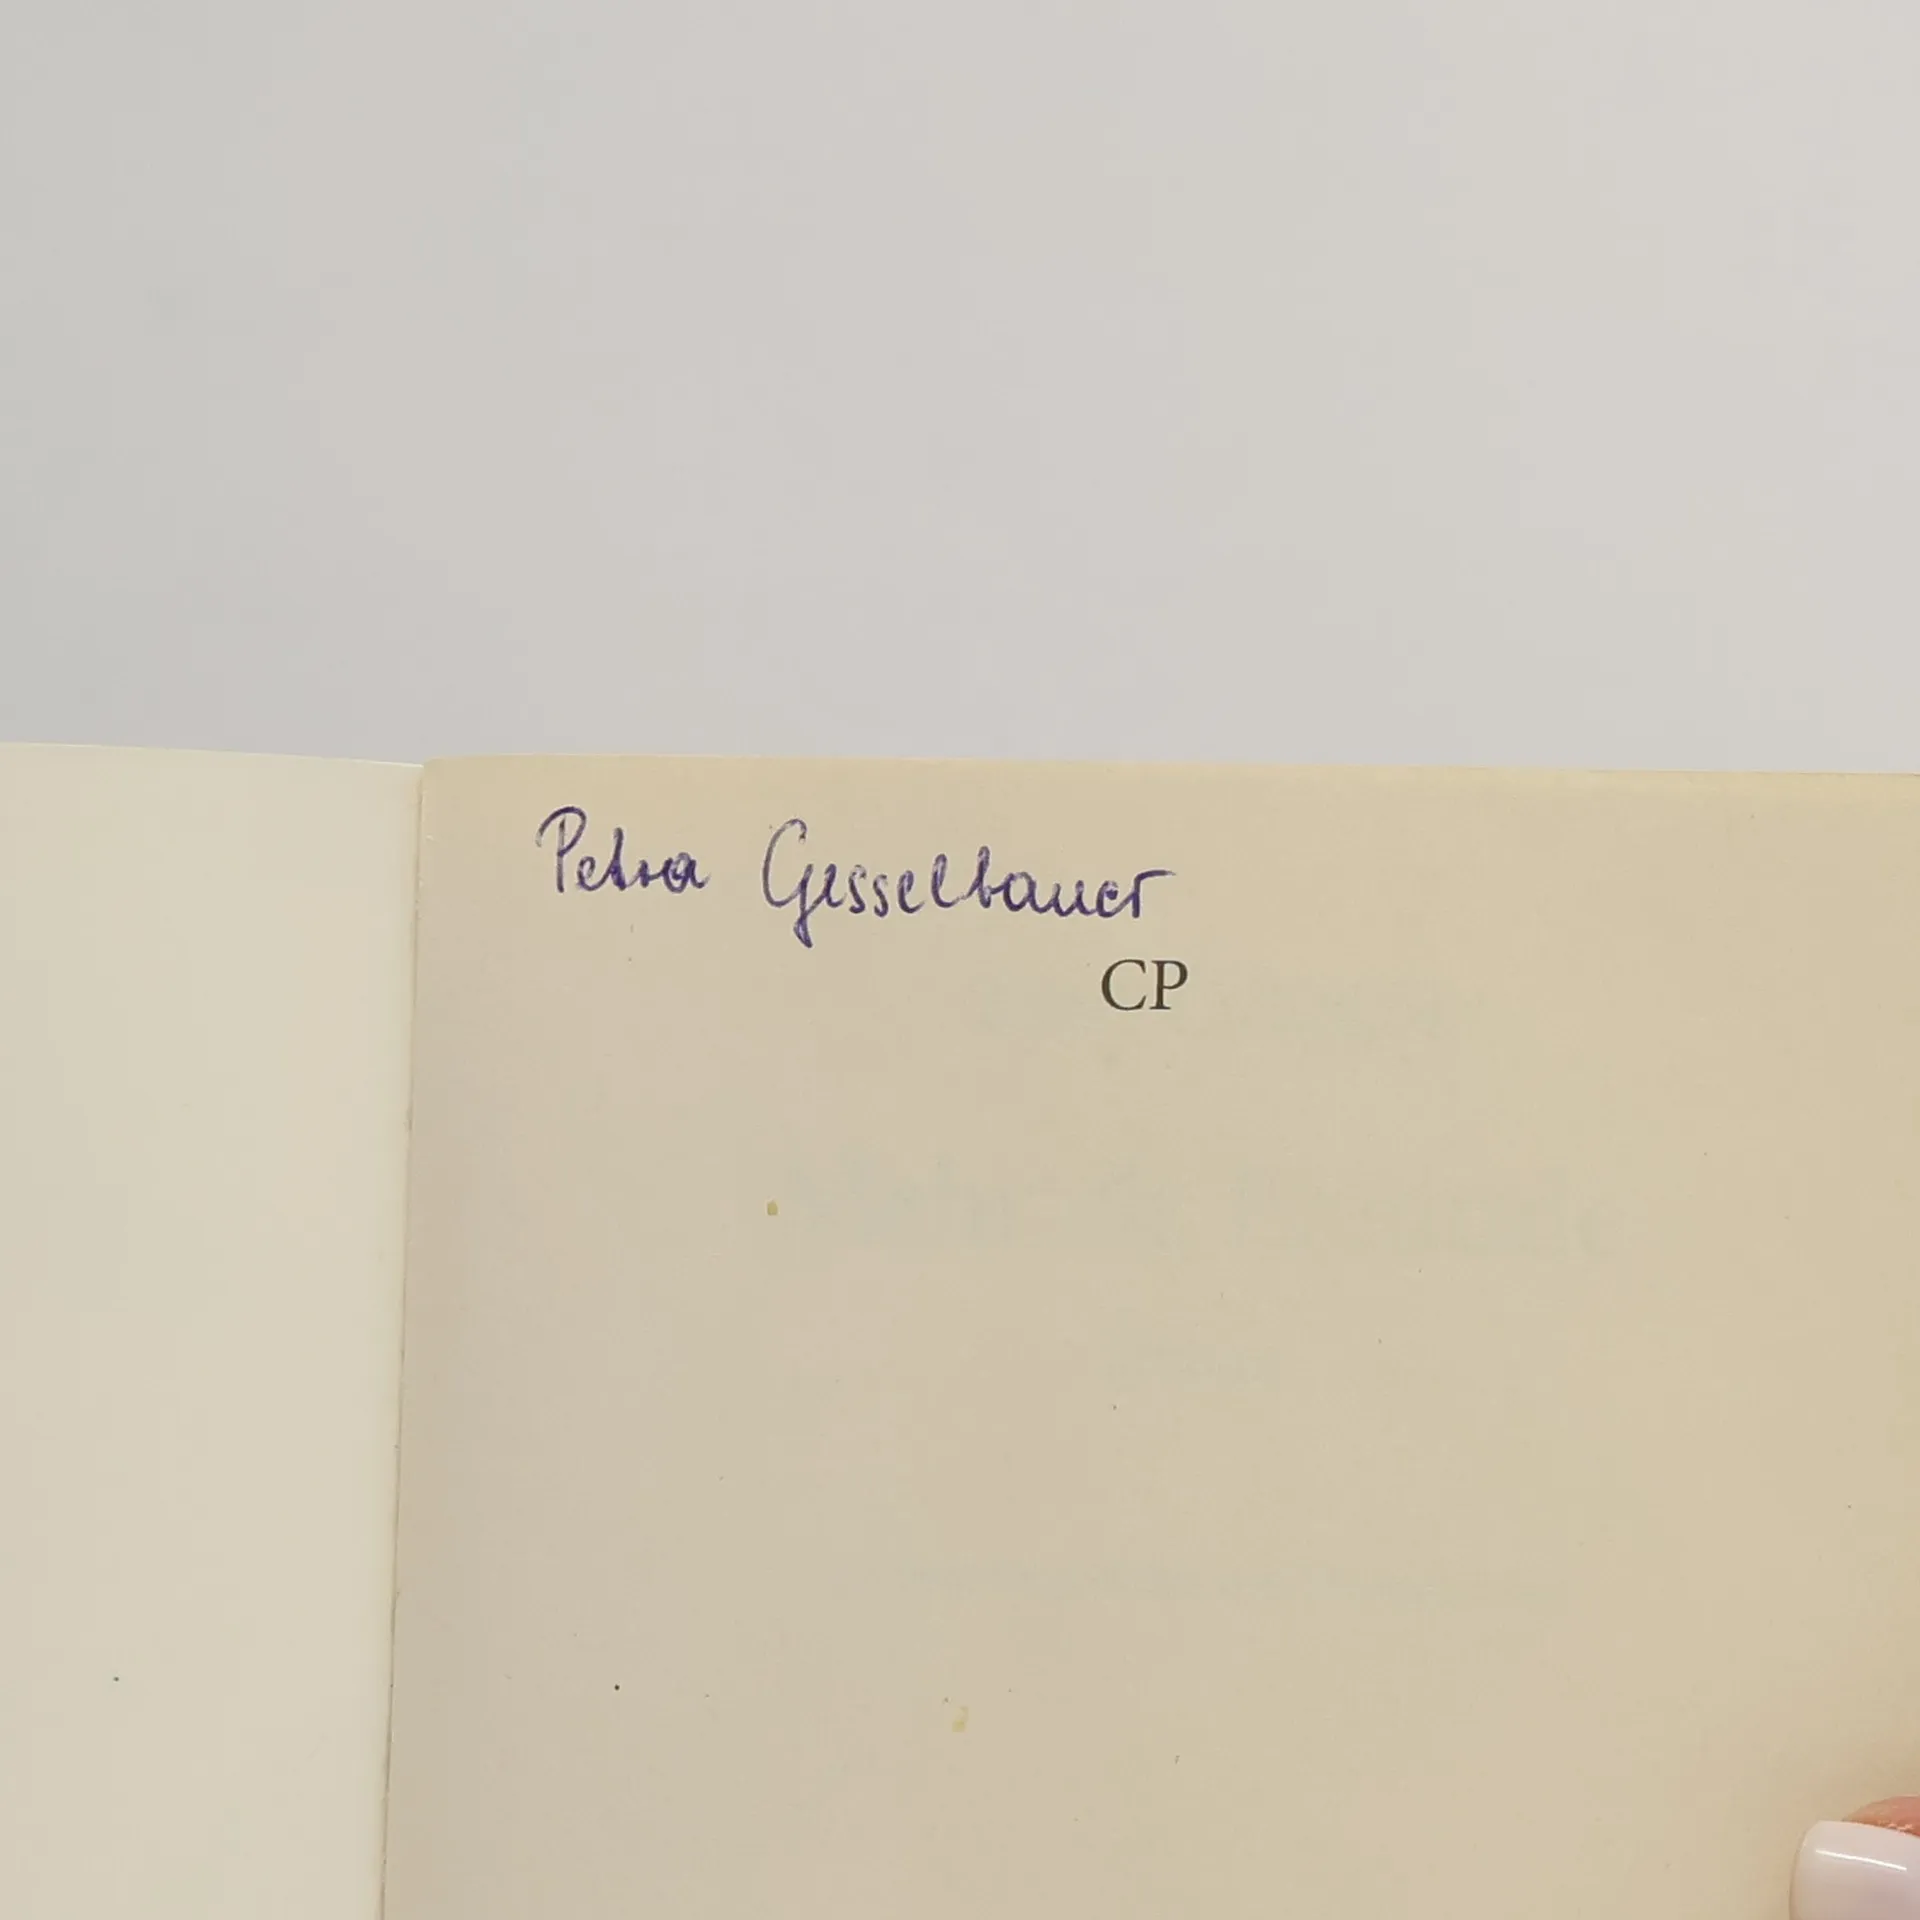 Petra Gesselbauer
CP